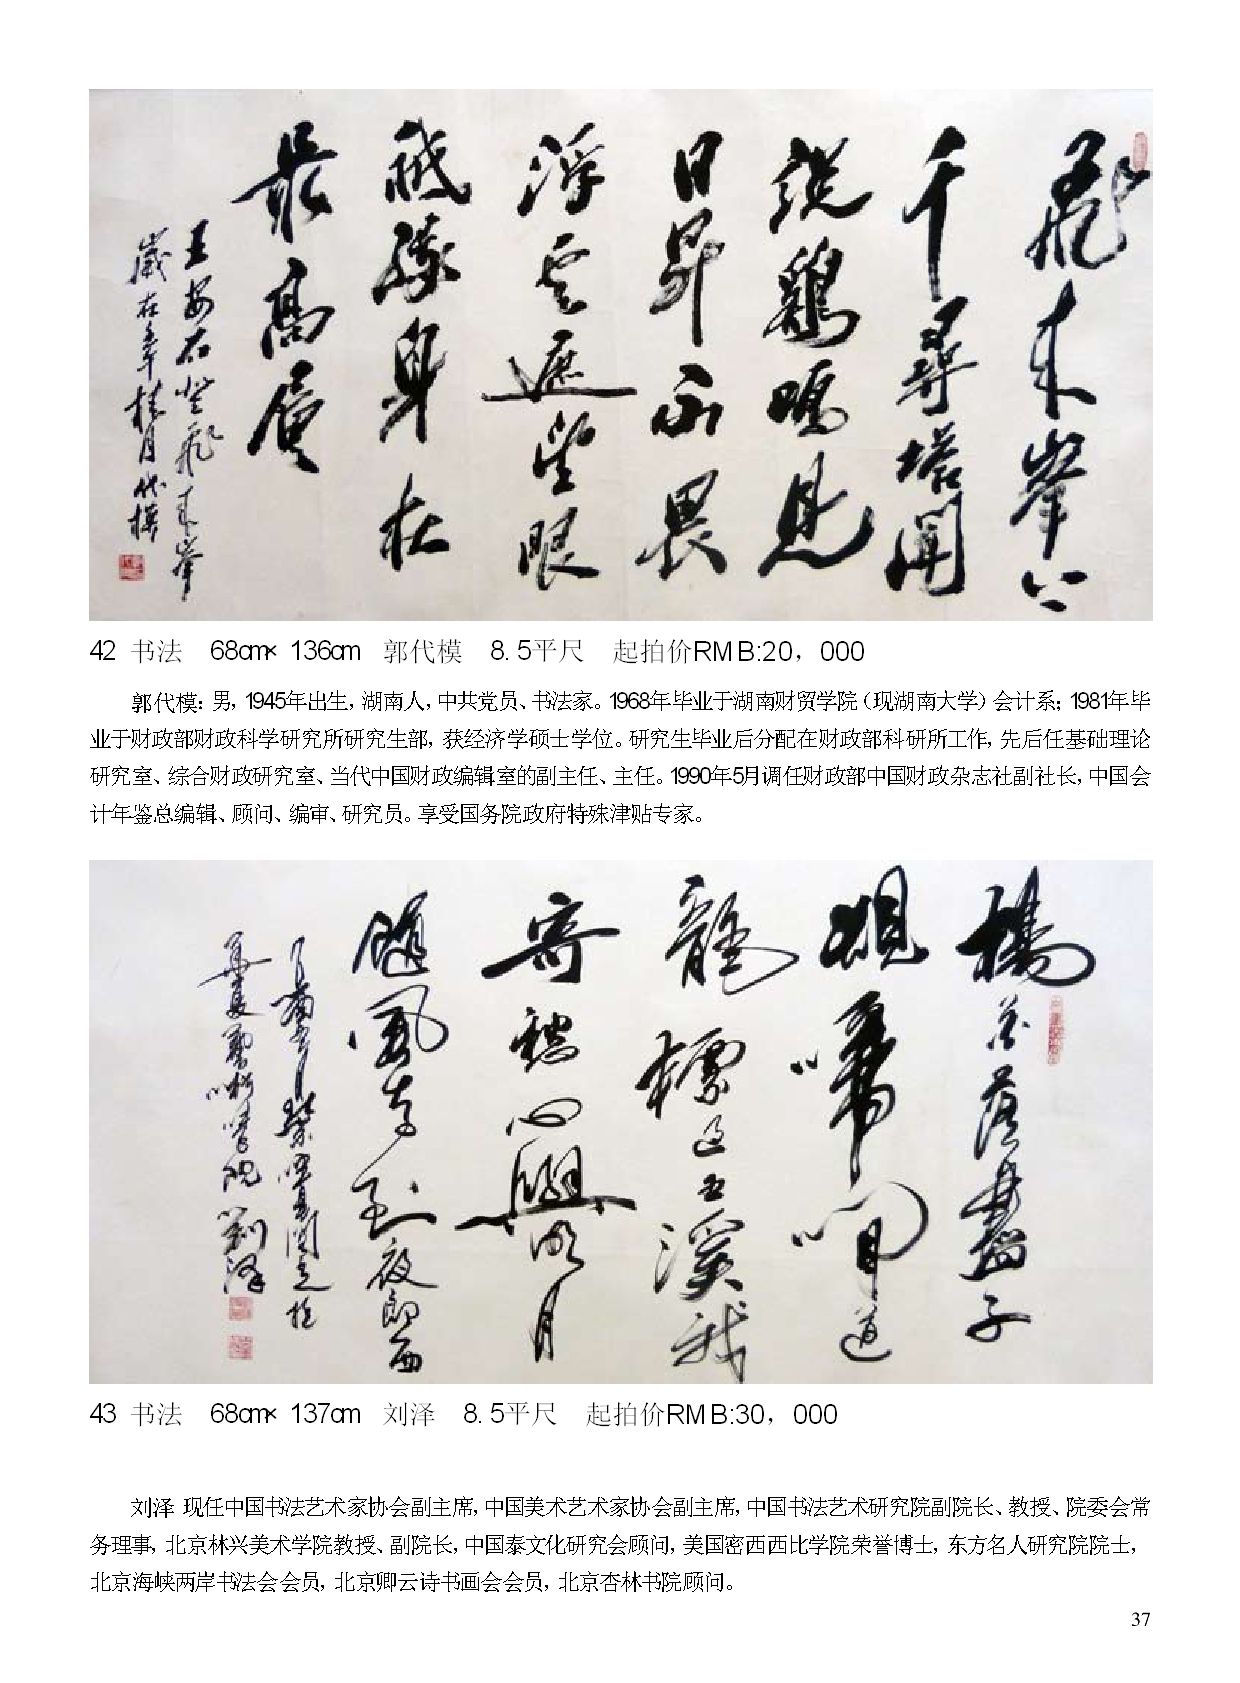 飛来峯上
千尋塔聞
说鷄鳴見
日昇不畏
浮雲遮望眼
祇緣身在
最高層
王安石登飛来峯
歲在辛 桂月代模
42 书法 68cm× 136cm 郭代模 8.5平尺 起拍价RMB:20，000
郭代模：男，1945年出生，湖南人，中共党员、书法家。1968年毕业于湖南财贸学院（现湖南大学）会计系；1981年毕
业于财政部财政科学研究所研究生部，获经济学硕士学位。研究生毕业后分配在财政部科研所工作，先后任基础理论
研究室、综合财政研究室、当代中国财政编辑室的副主任、主任。1990年5月调任财政部中国财政杂志社副社长，中国会
计年鉴总编辑、顾问、编审、研究员。享受国务院政府特殊津贴专家。
楊花落盡子
規啼聞道
龍標過五溪我
寄愁心與明月
随風直到夜郎西
43 书法 68cm× 137cm 刘泽 8.5平尺 起拍价RMB:30，000
刘泽 现任中国书法艺术家协会副主席，中国美术艺术家协会副主席，中国书法艺术研究院副院长、教授、院委会常
务理事，北京林兴美术学院教授、副院长，中国泰文化研究会顾问，美国密西西比学院荣誉博士，东方名人研究院院士，
北京海峡两岸书法会会员，北京卿云诗书画会会员，北京杏林书院顾问。
37